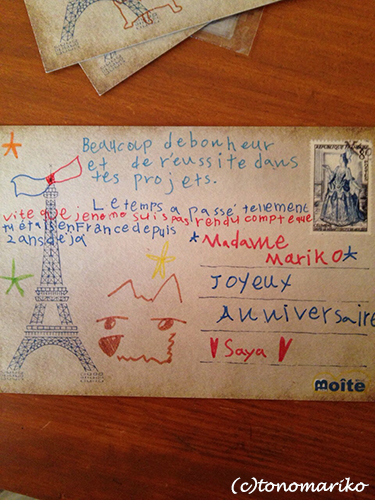 Beaucoup de bonheur
et de réussite dans
tes projets.
Le temps a passé tellement
vite que je ne me suis pas rendu compte que
tu étais en France depuis
2 ans déjà
Madame
Mariko
Joyeux
Anniversaire
Saya
Boîte
(c)tonomariko